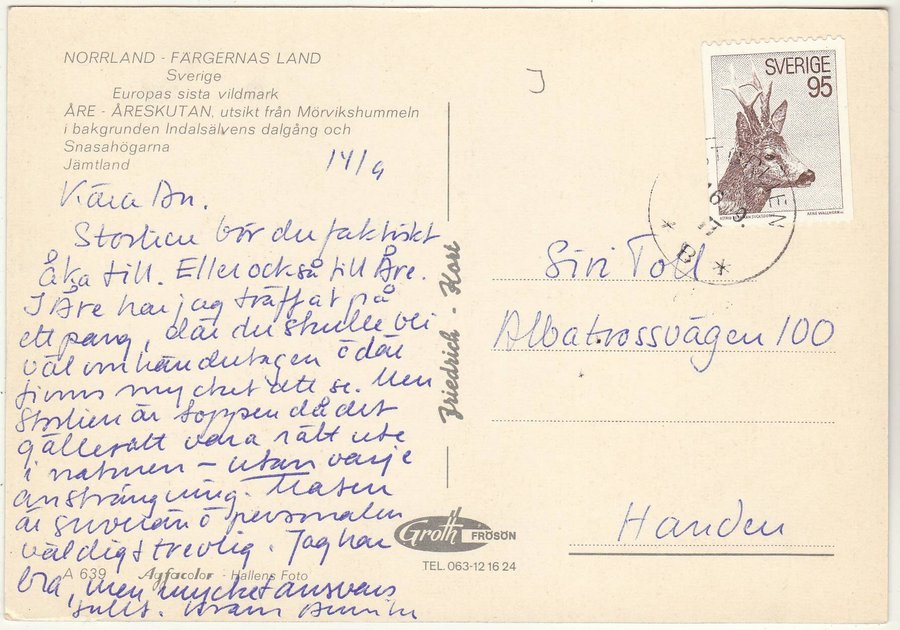 NORRLAND - FÄRGERNAS LAND
Sverige
Europas sista vildmark
ÅRE - ÅRESKUTAN, utsikt från Mörvikshummeln
i bakgrunden Indalsälvens dalgång och
Snasahögarna
Jämtland
14/9
Kära An.
Storlien bör du faktiskt
åka till. Eller också till Åre.
I Åre har jag träffat på
ett pang, där du skulle bli
väl omhändertagen o där
finns mycket att se. Men
Storlien är toppen då det
gäller att vara rätt ute
i naturen – utan varje
ansträngning. Maten
är suverän o personalen
väldigt trevlig. Jag har
bra, men mycket ansvars
fullt. Kram
A 639 Agfacolor - Hallens Foto
Friedrich - Kort
Groth FRÖSÖN
TEL. 063-12 16 24
SVERIGE
95
STORLIEN
* B *
Siri Toll
Albatrossvägen 100
Handen